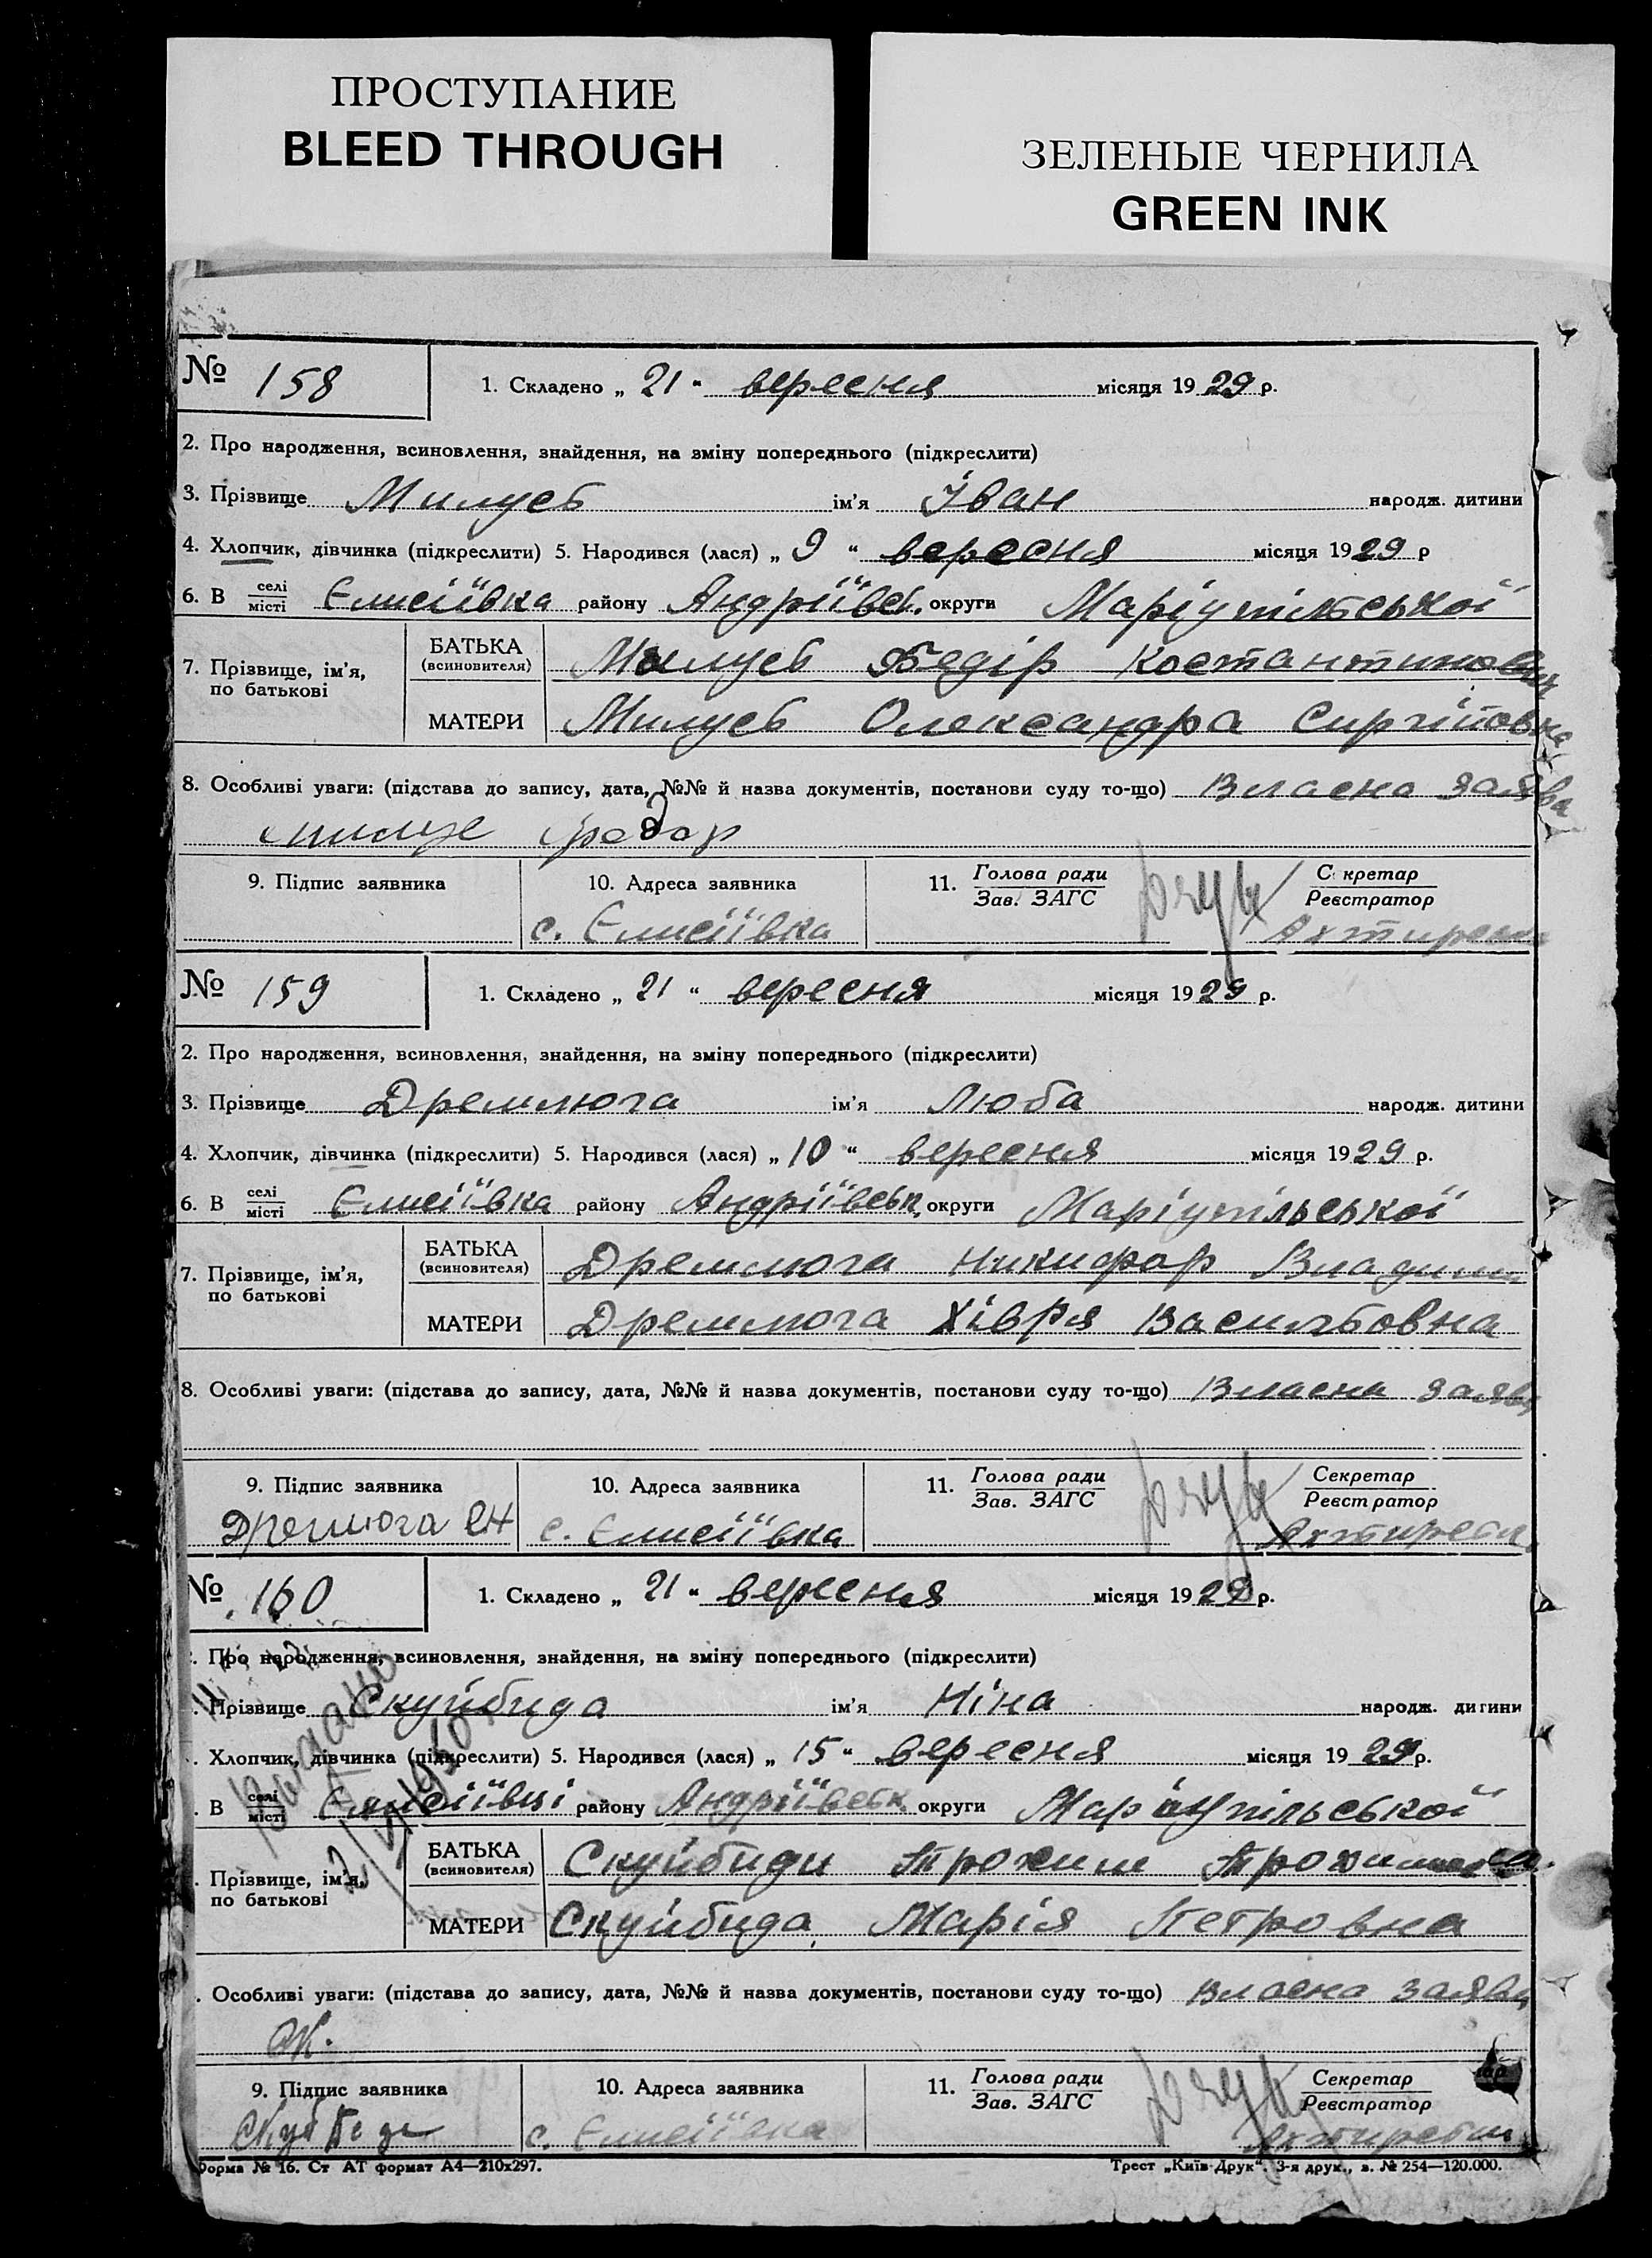 ПРОСТУПАНИЕ
BLEED THROUGH
ЗЕЛЕНЫЕ ЧЕРНИЛА
GREEN INK
№ 158
1. Складено „ 21 “ вересня місяця 19 29 р.
2. Про народження, всиновлення, знайдення, на зміну попереднього (підкреслити)
3. Прізвище Милусь ім'я Іван народж. дитини
4. Хлопчик, дівчинка (підкреслити) 5. Народився (лася) „ 9 “ вересня місяця 19 29 р
6. В селі місті Єлисіївка району Андріївск. округи Маріупільської
7. Прізвище, ім'я, по батькові
БАТЬКА (всиновителя) Милусь Федір Костантинович
МАТЕРИ Милусь Олександра Сиргіївовна
8. Особливі уваги: (підстава до запису, дата, №№ й назва документів, постанови суду то-що) Власна заява
милус федор
9. Підпис заявника
10. Адреса заявника
с. Єлисіївка
11. Голова ради Зав. ЗАГС
Секретар Реєстратор
№ 159
1. Складено „ 21 “ вересня місяця 19 29 р.
2. Про народження, всиновлення, знайдення, на зміну попереднього (підкреслити)
3. Прізвище Дремлюга ім'я Люба народж. дитини
4. Хлопчик, дівчинка (підкреслити) 5. Народився (лася) „ 10 “ вересня місяця 19 29 р.
6. В селі місті Єлисіївка району Андріївськ. округи Маріупільської
7. Прізвище, ім'я, по батькові
БАТЬКА (всиновителя) Дремлюга Никифор Владими
МАТЕРИ Дремлюга Хівря Васильовна
8. Особливі уваги: (підстава до запису, дата, №№ й назва документів, постанови суду то-що) Власна заява
9. Підпис заявника
Дремлюга
10. Адреса заявника
с. Єлисіївка
11. Голова ради Зав. ЗАГС
Секретар Реєстратор
№ 160
1. Складено „ 21 “ вересня місяця 19 29 р.
. Про народження, всиновлення, знайдення, на зміну попереднього (підкреслити)
. Прізвище Скуйбида ім'я Ніна народж. дитини
. Хлопчик, дівчинка (підкреслити) 5. Народився (лася) „ 15 “ вересня місяця 19 29 р.
. В селі місті Єлисіївці району Андріївськ. округи Маріупільської
. Прізвище, ім'я, по батькові
БАТЬКА (всиновителя) Скуйбиди Трохим
МАТЕРИ Скуйбида Марія Петровна
. Особливі уваги: (підстава до запису, дата, №№ й назва документів, постанови суду то-що) Власна заява
9. Підпис заявника
10. Адреса заявника
с. Єлисіївка
11. Голова ради Зав. ЗАГС
Секретар Реєстратор
Форма № 16. Ст АТ формат А4—210х297.
Трест „Київ-Друк“. 3-я друк., з. № 254—120.000.